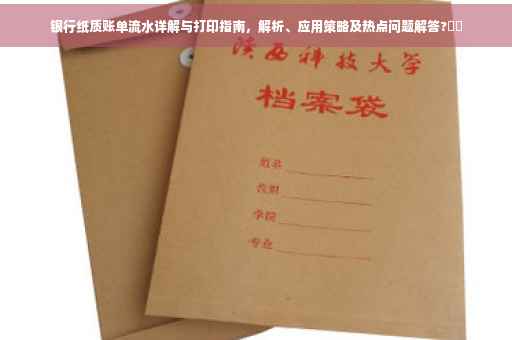 银行纸质账单流水详解与打印指南，解析、应用策略及热点问题解答?
陕西科技大学
档案袋
姓名
学院
专业